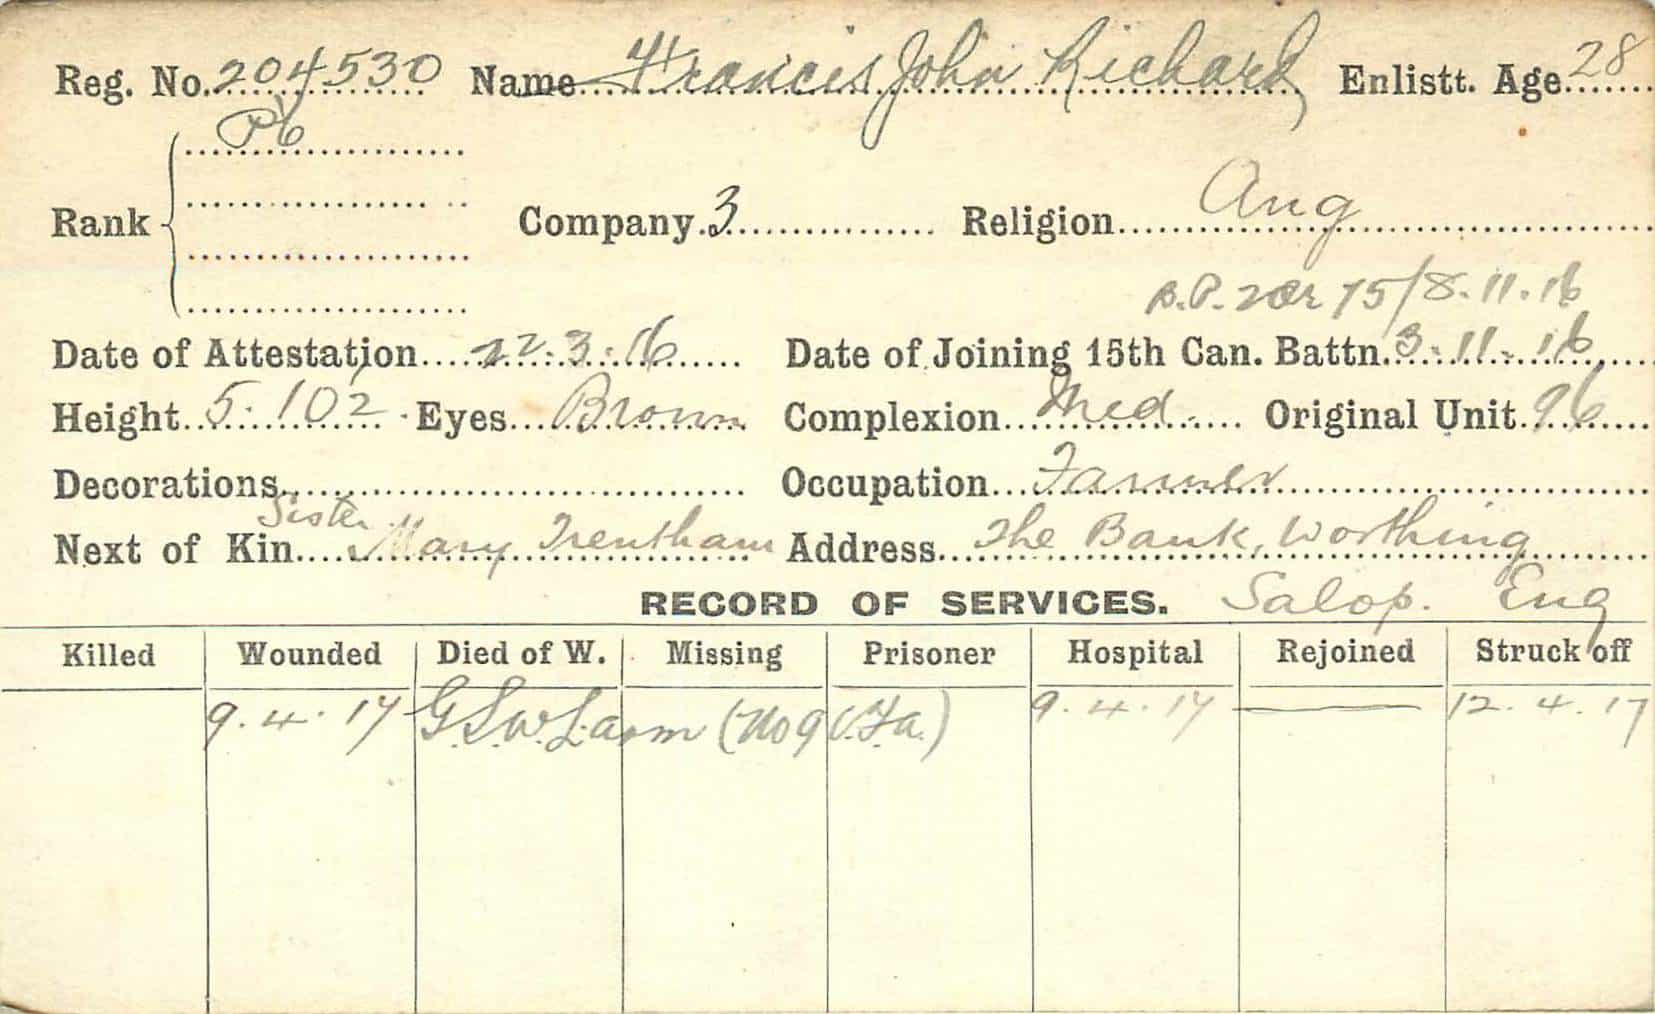 Reg. No. 204530 Name Francis John Richard Enlistt. Age 28
Pte
Rank Company 3 Religion Ang
75/8.11.16
Date of Attestation 22.3.16 Date of Joining 15th Can. Battn. 3.11.16
Height 5.10½ Eyes Brown Complexion Med. Original Unit 96
Decorations Occupation Farmer
Sister
Next of Kin Mary Trentham Address The Bank, Worthing
RECORD OF SERVICES. Salop. Eng
Killed Wounded Died of W. Missing Prisoner Hospital Rejoined Struck off
9.4.17 G.S.W. L arm (No 9 C.F.A.) 9.4.17 12.4.17